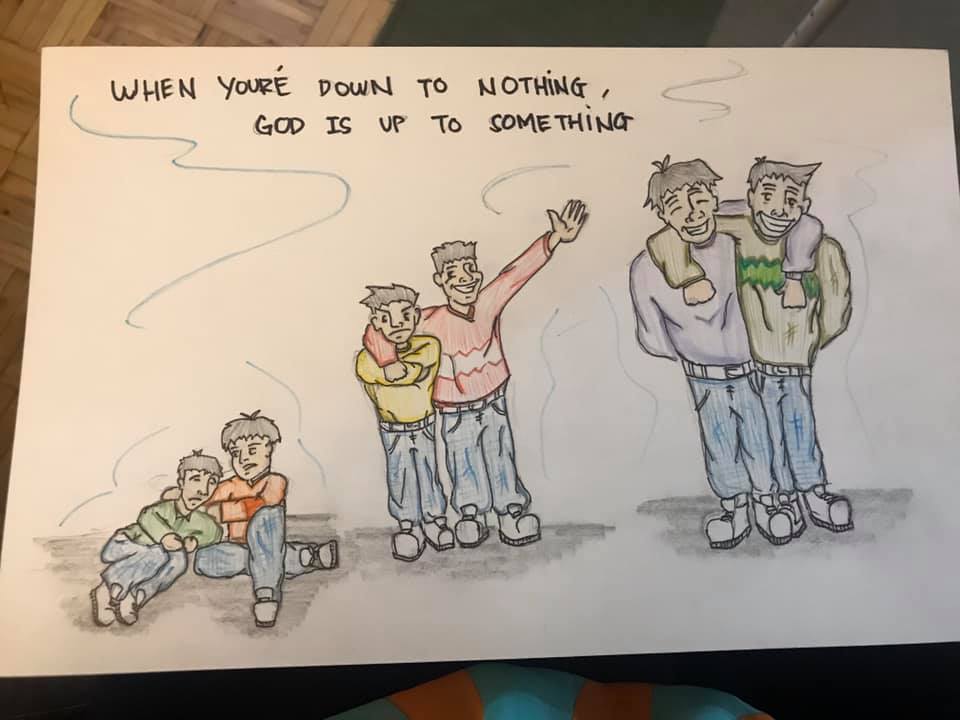 WHEN YOURÉ DOWN TO NOTHING,
GOD IS UP TO SOMETHING